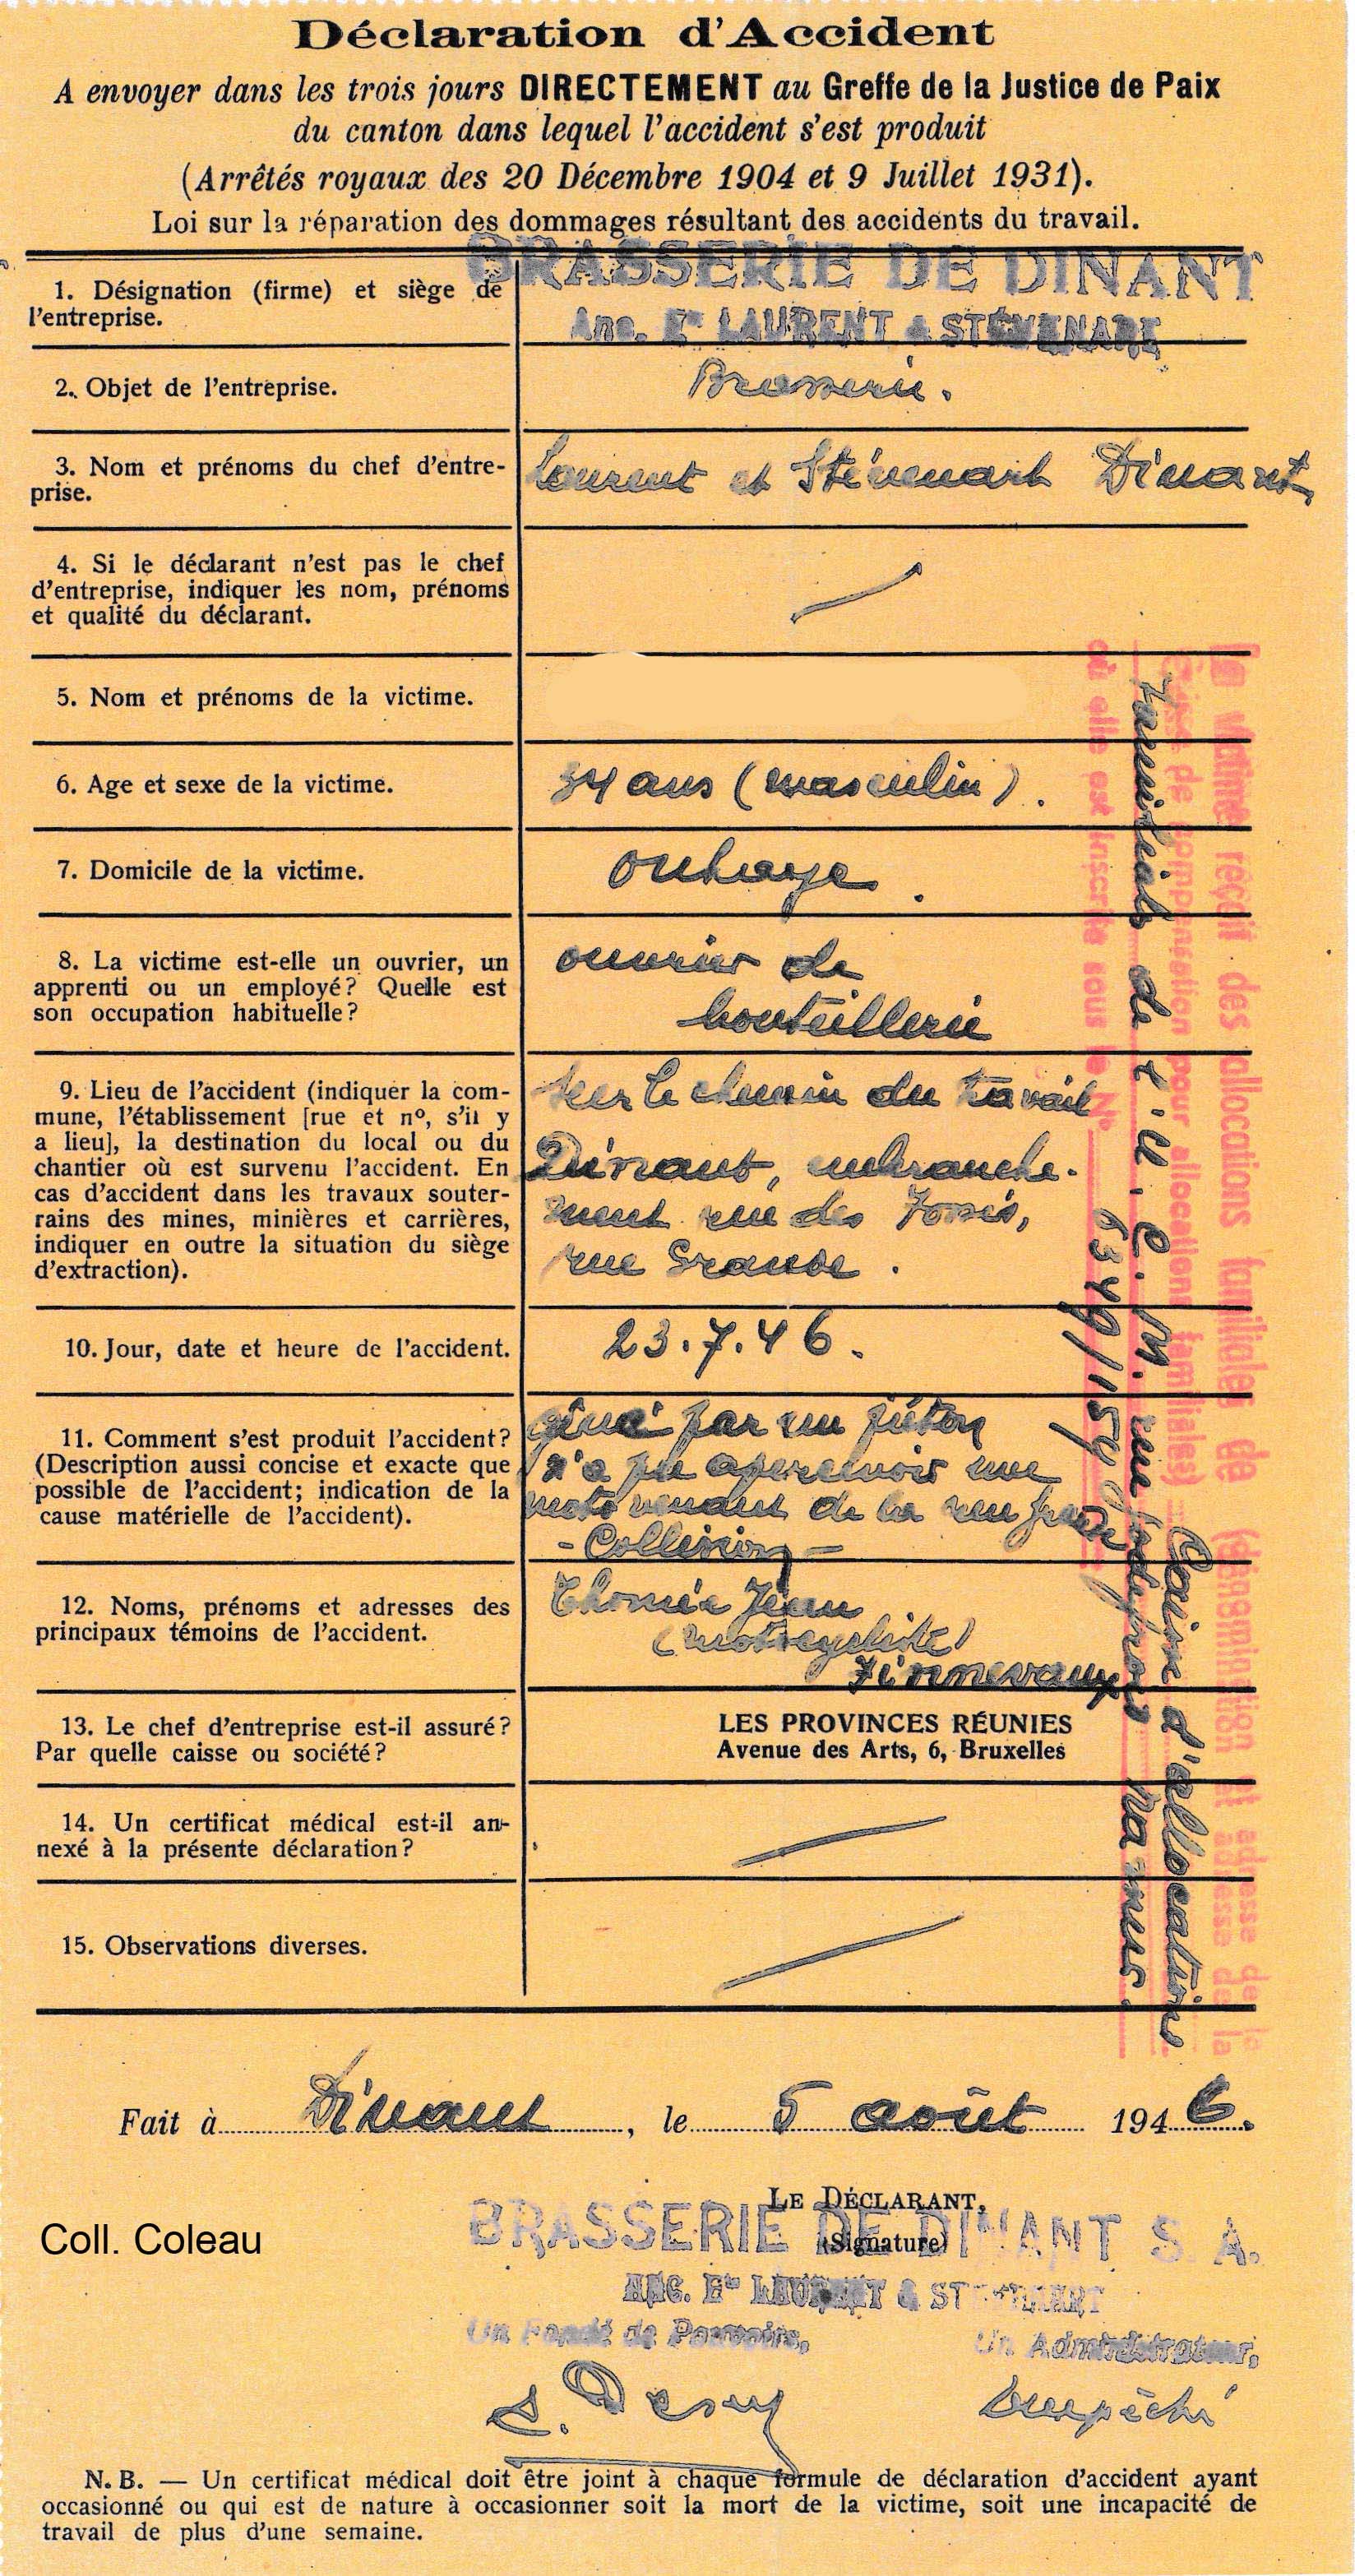 Déclaration d'Accident
A envoyer dans les trois jours DIRECTEMENT au Greffe de la Justice de Paix
du canton dans lequel l'accident s'est produit
(Arrêtés royaux des 20 Décembre 1904 et 9 Juillet 1931).
Loi sur la réparation des dommages résultant des accidents du travail.
1. Désignation (firme) et siège de
l'entreprise.
BRASSERIE DE DINANT
Anc. Ets LAURENT & STÉVENART
2. Objet de l'entreprise.
Brasserie.
3. Nom et prénoms du chef d'entre-
prise.
Laurent et Stévenart Dinant
4. Si le déclarant n'est pas le chef
d'entreprise, indiquer les nom, prénoms
et qualité du déclarant.
5. Nom et prénoms de la victime.
6. Age et sexe de la victime.
34 ans (masculin).
7. Domicile de la victime.
Onhaye.
8. La victime est-elle un ouvrier, un
apprenti ou un employé? Quelle est
son occupation habituelle?
ouvrier de
bouteillerie
9. Lieu de l'accident (indiquer la com-
mune, l'établissement [rue et nº, s'il y
a lieu], la destination du local ou du
chantier où est survenu l'accident. En
cas d'accident dans les travaux souter-
rains des mines, minières et carrières,
indiquer en outre la situation du siège
d'extraction).
Sur le chemin du travail
Dinant, embranche-
ment rue des Fossés,
rue Grande.
10. Jour, date et heure de l'accident.
23.7.46.
11. Comment s'est produit l'accident?
(Description aussi concise et exacte que
possible de l'accident; indication de la
cause matérielle de l'accident).
gêné par un piéton
n'a pu apercevoir une
moto venant de la rue
- Collision -
12. Noms, prénoms et adresses des
principaux témoins de l'accident.
Thomée Jean
(motocycliste)
Finnevaux
13. Le chef d'entreprise est-il assuré?
Par quelle caisse ou société?
LES PROVINCES RÉUNIES
Avenue des Arts, 6, Bruxelles
14. Un certificat médical est-il an-
nexé à la présente déclaration?
15. Observations diverses.
La victime reçoit des allocations familiales de (dénomination et adresse de la
Caisse de compensation pour allocations familiales)
Caisse d'allocations
familiales de l'U.C.M. rue Namur
où elle est inscrite sous le Nº 6349/154
Fait à Dinant, le 5 août 1946.
LE DÉCLARANT,
(Signature)
BRASSERIE DE DINANT S. A.
ANC. Ets LAURENT & STÉVENART
Un Fondé de Pouvoirs,
Un Administrateur,
empêché
Coll. Coleau
N. B. — Un certificat médical doit être joint à chaque formule de déclaration d'accident ayant
occasionné ou qui est de nature à occasionner soit la mort de la victime, soit une incapacité de
travail de plus d'une semaine.